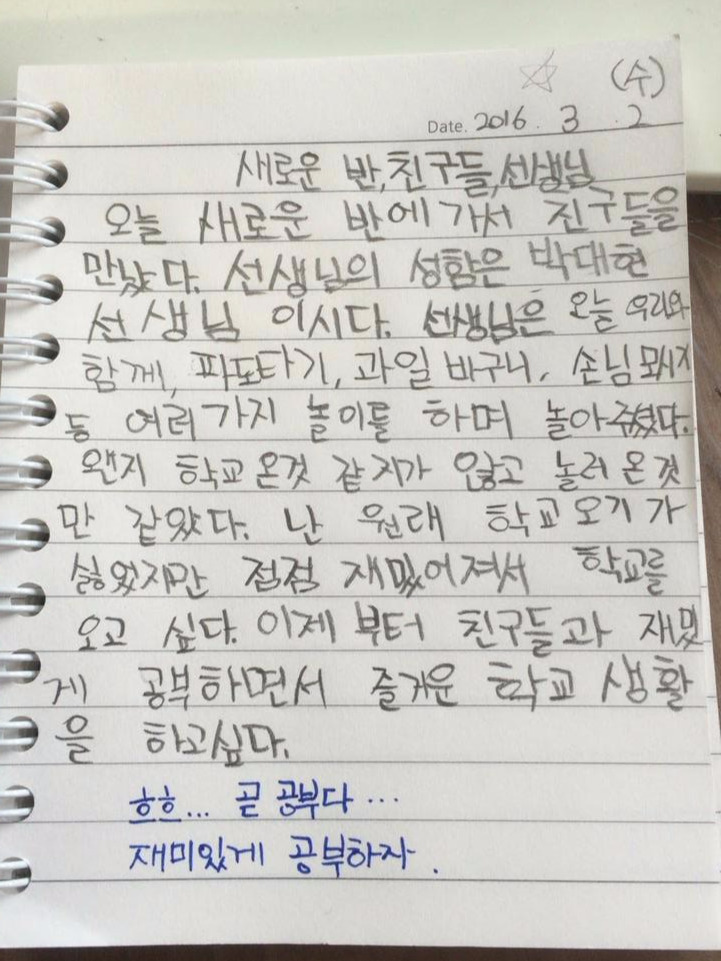 (수)
Date. 2016 . 3 . 2
새로운 반, 친구들, 선생님
오늘 새로운 반에 가서 친구들을
만났다. 선생님의 성함은 박대현
선생님 이시다. 선생님은 오늘 우리와
함께, 파도타기, 과일 바구니, 손님 모시기
등 여러가지 놀이를 하며 놀아주셨다.
왠지 학교 온것 같지가 않고 놀러 온 것
만 같았다. 난 원래 학교 오기 가
싫었지만 점점 재밌어져서 학교를
오고 싶다. 이제 부터 친구들과 재밌
게 공부하면서 즐거운 학교 생활
을 하고싶다.
흐흐... 곧 공부다...
재미있게 공부하자.